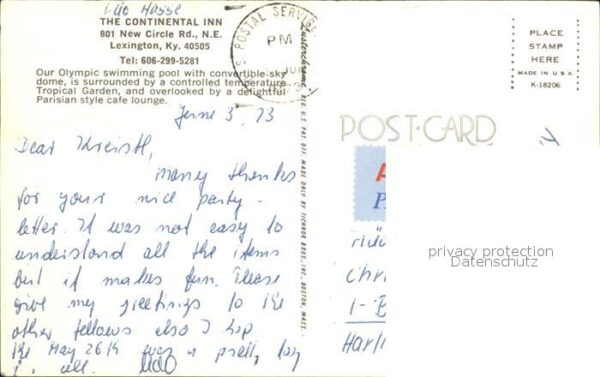 Udo Hasse
THE CONTINENTAL INN
801 New Circle Rd., N.E.
Lexington, Ky. 40505
Tel: 606-299-5281
Our Olympic swimming pool with convertible sky
dome, is surrounded by a controlled temperature
Tropical Garden, and overlooked by a delightful
Parisian style cafe lounge.
June 3, 73
Dear
many thanks
for your nice party-
letter. It was not easy to
understand all the items
but it makes fun. Please
give my greetings to the
other fellows also I hop
the May 26th was a pretty day
all. Udo
POSTAL SERVICE
PM
Lusterchrome
REG. U.S. PAT. OFF. MADE ONLY BY TICHNOR BROS., INC., BOSTON, MASS.
PLACE
STAMP
HERE
MADE IN U.S.A.
K-18206
POST-CARD
A
P
Chri
1-B
Harl
privacy protection
Datenschutz